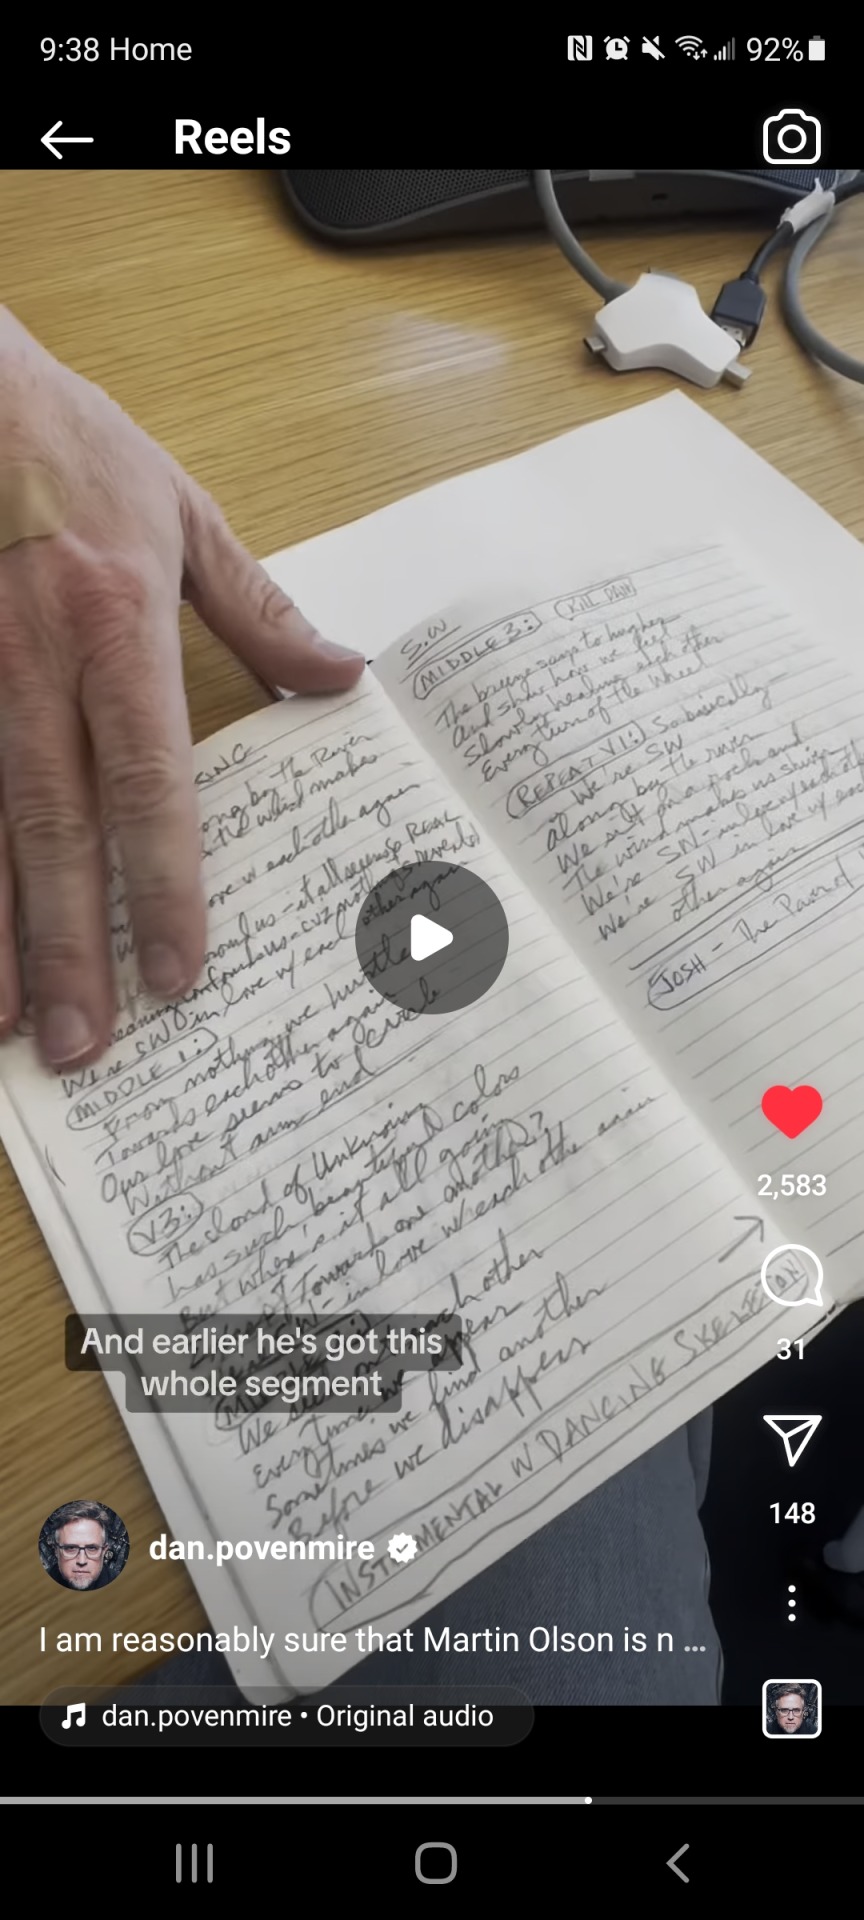 9:38 Home
92%
Reels
S.W
MIDDLE 3:
The breeze says to
And show how we feel
Slowly healing each other
Every turn of the wheel
REPEAT V1: So basically
We're SW
along by the river
We sit on a rock and
The wind makes us shiver
We're SW in love w/ each
We're SW in love w/ each
other again
JOSH - The
ong by the River
& the wind makes
ove w each other again
round us - it all seems REAL
We're SW in love w/ each other again
MIDDLE 1:
From nothing we hurtle
Towards each other again
Our love seems to
Without any end
V3:
The cloud of Unknowing
has such beautiful colors
But where's it all going?
Except Toward one another
in love w each other again
We each other
Everytime we appear
Sometimes we find another
Before we disappear
INSTRUMENTAL W DANCING SKELETON
And earlier he's got this
whole segment
2,583
31
148
dan.povenmire
I am reasonably sure that Martin Olson is n ...
dan.povenmire • Original audio